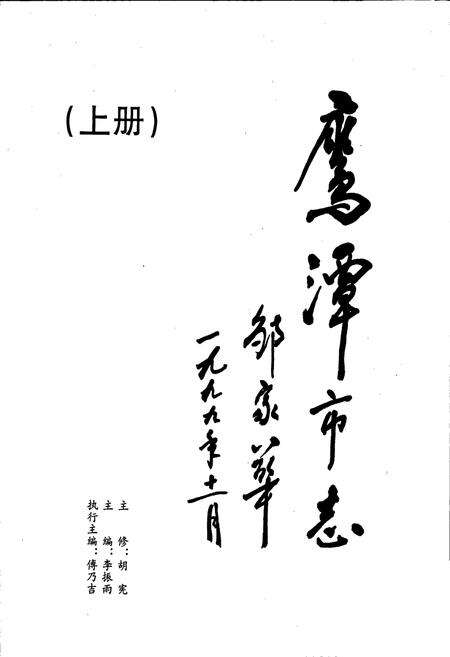 鹰潭市志
邹家華
一九九九年十一月
(上册)
主 修：胡 宪
主 编：李振雨
执行主编：傅乃吉